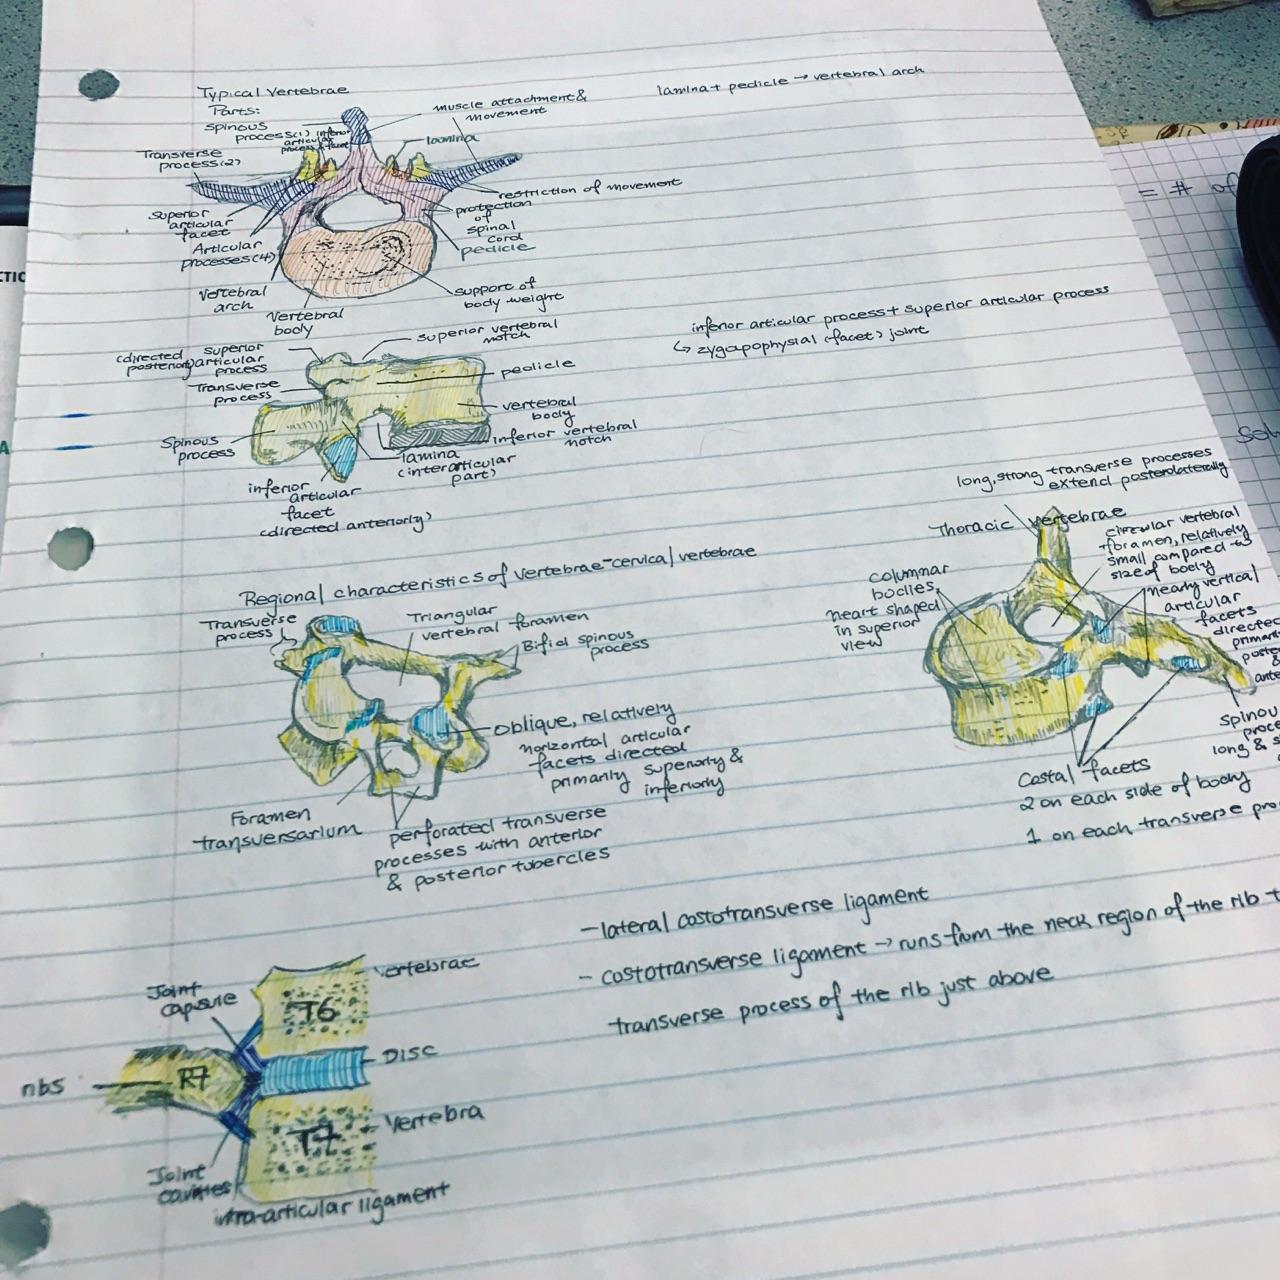 Typical Vertebrae
Parts:
spinous
process(1)
inferior
articular
process & facet
Transverse
process(2)
muscle attachment &
movement
lamina
lamina + pedicle → vertebral arch
Superior
articular
facet
Articular
processes(4)
restriction of movement
protection
of
spinal
cord
pedicle
Vertebral
arch
Vertebral
body
support of
body weight
(directed
posteriorly)
superior
articular
process
superior vertebral
notch
Transverse
process
pedicle
vertebral
body
inferior vertebral
notch
Spinous
process
lamina
(interarticular
part)
inferior
articular
facet
(directed anteriorly)
inferior articular process + superior articular process
↳ zygapophysial (facet) joint
= # of
Regional characteristics of vertebrae-cervical vertebrae
Transverse
process
Triangular
vertebral foramen
Bifid spinous
process
Oblique, relatively
horizontal articular
facets directed
primarily superiorly &
inferiorly
Foramen
transversarium
perforated transverse
processes with anterior
& posterior tubercles
long, strong transverse processes
extend posterolaterally
Thoracic vertebrae
columnar
bodies,
heart shaped
in superior
view
circular vertebral
foramen, relatively
small compared to
size of body
nearly vertical
articular
facets
directed
Costal facets
2 on each side of body
1 on each transverse
long &
- lateral costotransverse ligament
- costotransverse ligament → runs from the neck region of the rib
transverse process of the rib just above
Joint
capsule
Vertebrae
T6
Disc
R7
T7
Vertebra
Joint
cavities
intra-articular ligament